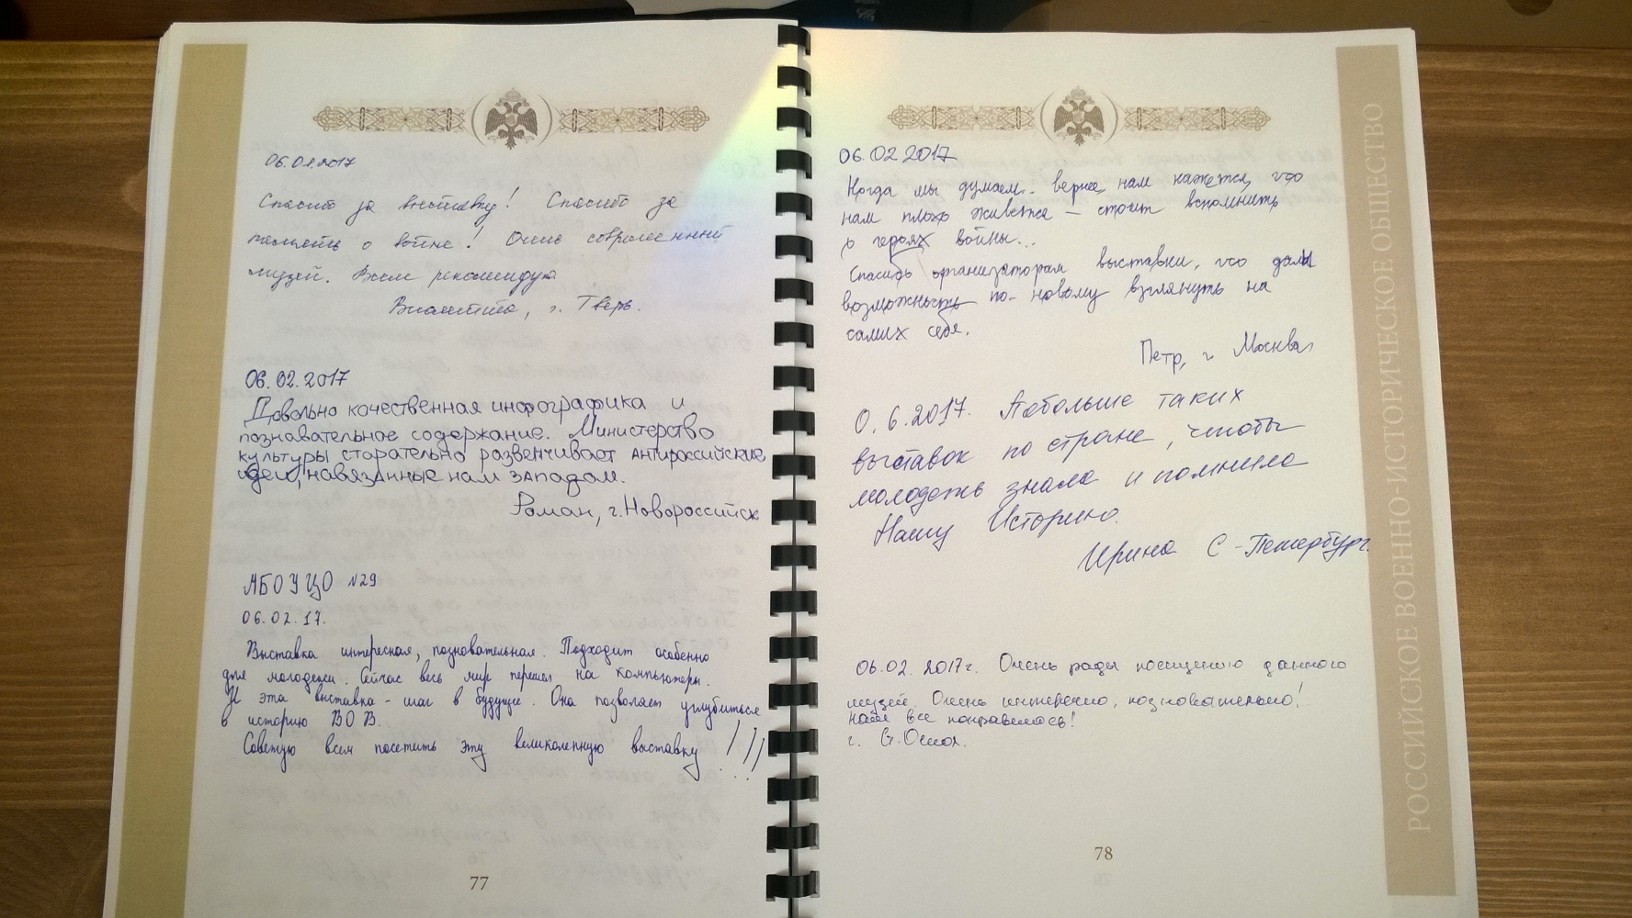 06.02.2017
Спасибо за выставку! Спасибо за
память о войне! Очень современный
музей. Всем рекомендую
г. Тверь.
06.02.2017
Довольно качественная инфографика и
познавательное содержание. Министерство
культуры старательно развенчивает антироссийские
идеи, навязанные нам западом.
Роман, г. Новороссийск
АБОУЦО №29
06.02.17.
Выставка интересная, познавательная. Подходит особенно
для молодежи. Сейчас весь мир перешел на компьютеры.
И эта выставка - шаг в будущее. Она позволяет углубиться
в историю ВОВ.
Советую всем посетить эту великолепную выставку!!!
77
06.02.2017
Когда мы думаем, вернее, нам кажется, что
нам плохо живется — стоит вспомнить
о героях войны...
Спасибо организаторам выставки, что дали
возможность по-новому взглянуть на
самих себя.
Петр, г. Москва
0.6.2017. Побольше таких
выставок по стране, чтобы
молодежь знала и помнила
Нашу Историю.
Ирина С-Петербург.
06.02.2017г. Очень рады посещению данного
музея. Очень интересно, познавательно!
Нам все понравилось!
78
РОССИЙСКОЕ ВОЕННО-ИСТОРИЧЕСКОЕ ОБЩЕСТВО